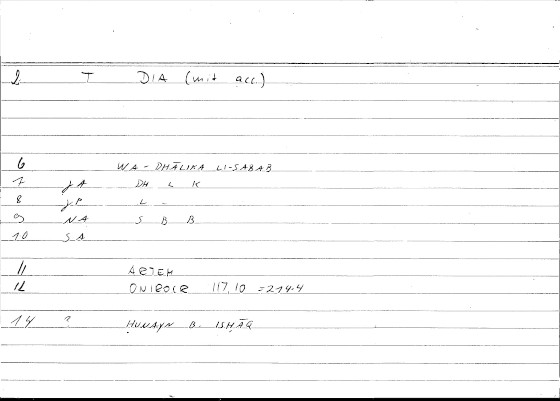 2 T DIA (mit acc.)
6 WA-DHĀLIKA LI-SABAB
7 JA DH L K
8 JP L -
9 NA S B B
10 SA
11 ARTEM
12 ONIROCR 117.10 = 214.4
14 ? ḤUNAYN B. ISḤĀQ